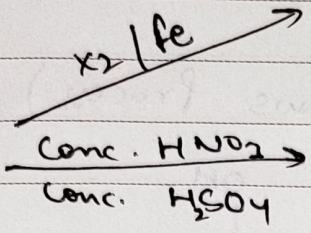 X2 | fe
Conc. HNO3
Conc. H2SO4